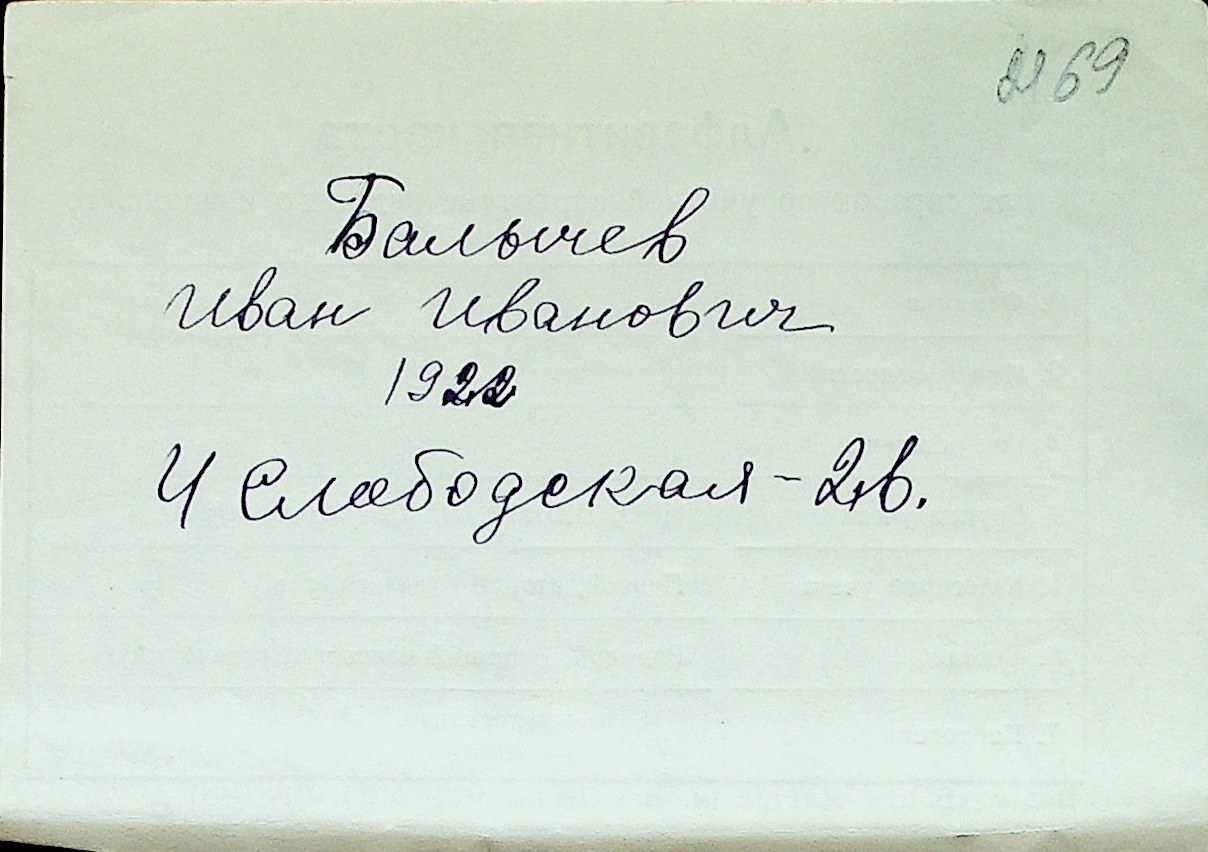 69
Балычев
Иван Иванович
1922
Ч Слободская - 2в.